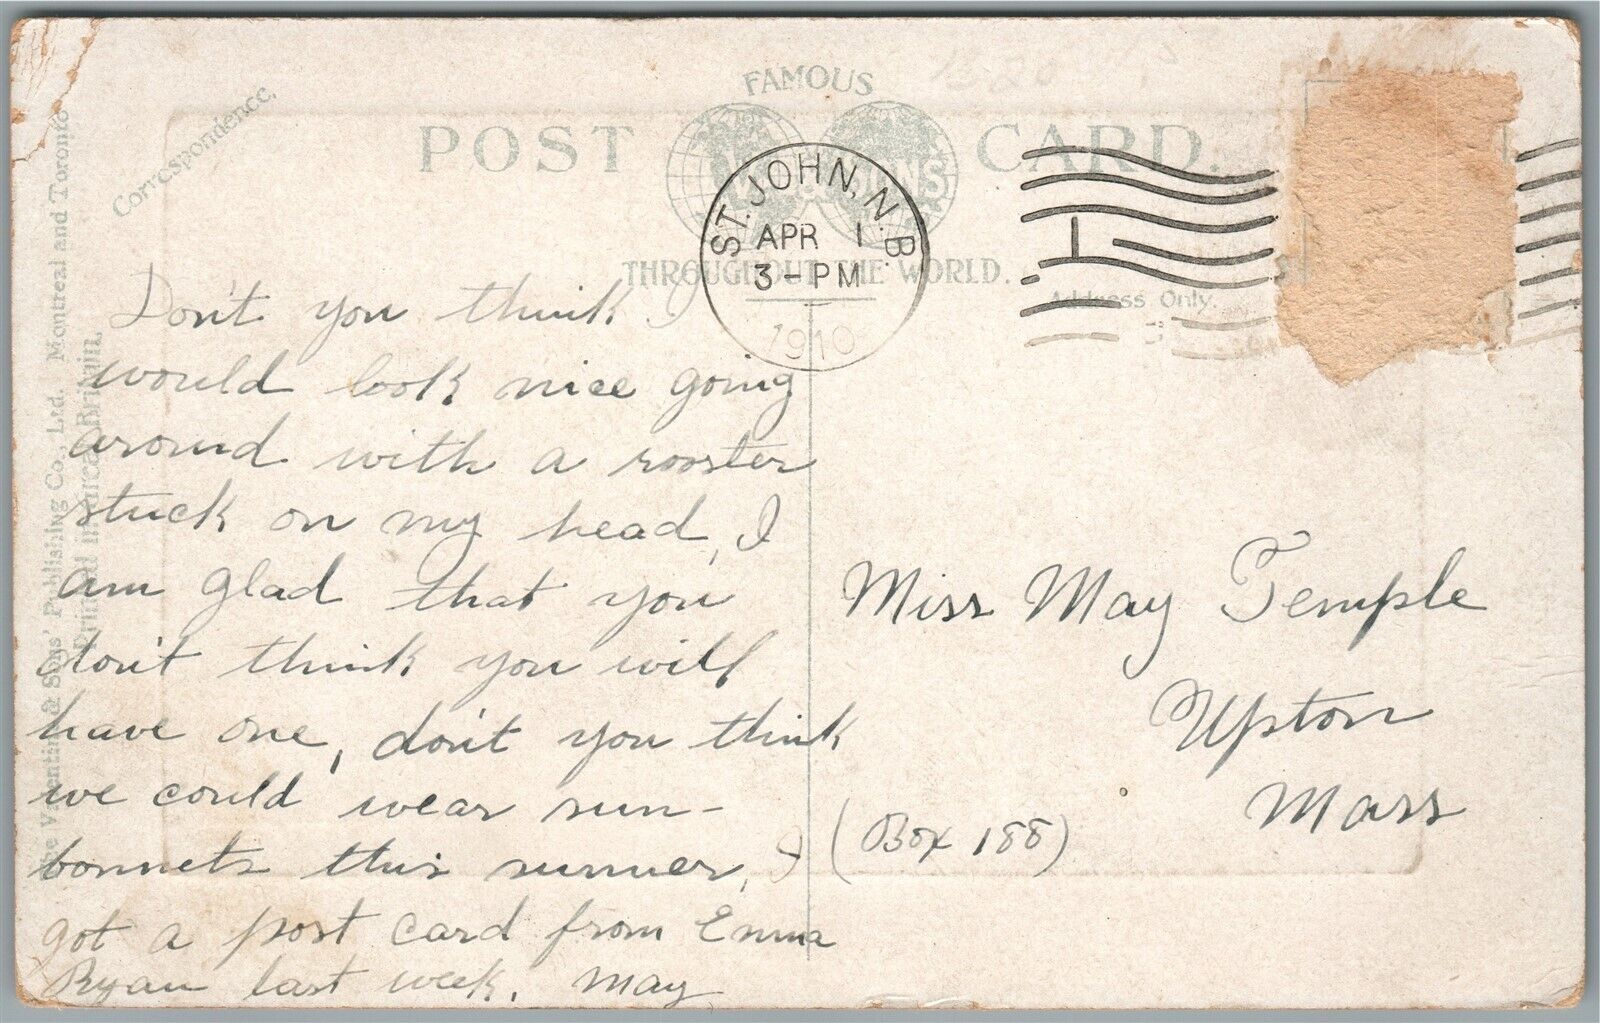 Correspondence.
FAMOUS
POST CARD.
THROUGHOUT THE WORLD.
Address Only.
ST. JOHN, N.B.
APR 1
3-PM
1910
The Valentine & Sons' Publishing Co., Ltd. Montreal and Toronto
Printed in Great Britain.
Don't you think I
would look nice going
around with a rooster
stuck on my head, I
am glad that you
don't think you will
have one, don't you think
we could wear sun-
bonnets this summer, I
got a post card from Emma
Ryan last week. May
Miss May Temple
Upton
Mass
(Box 188)